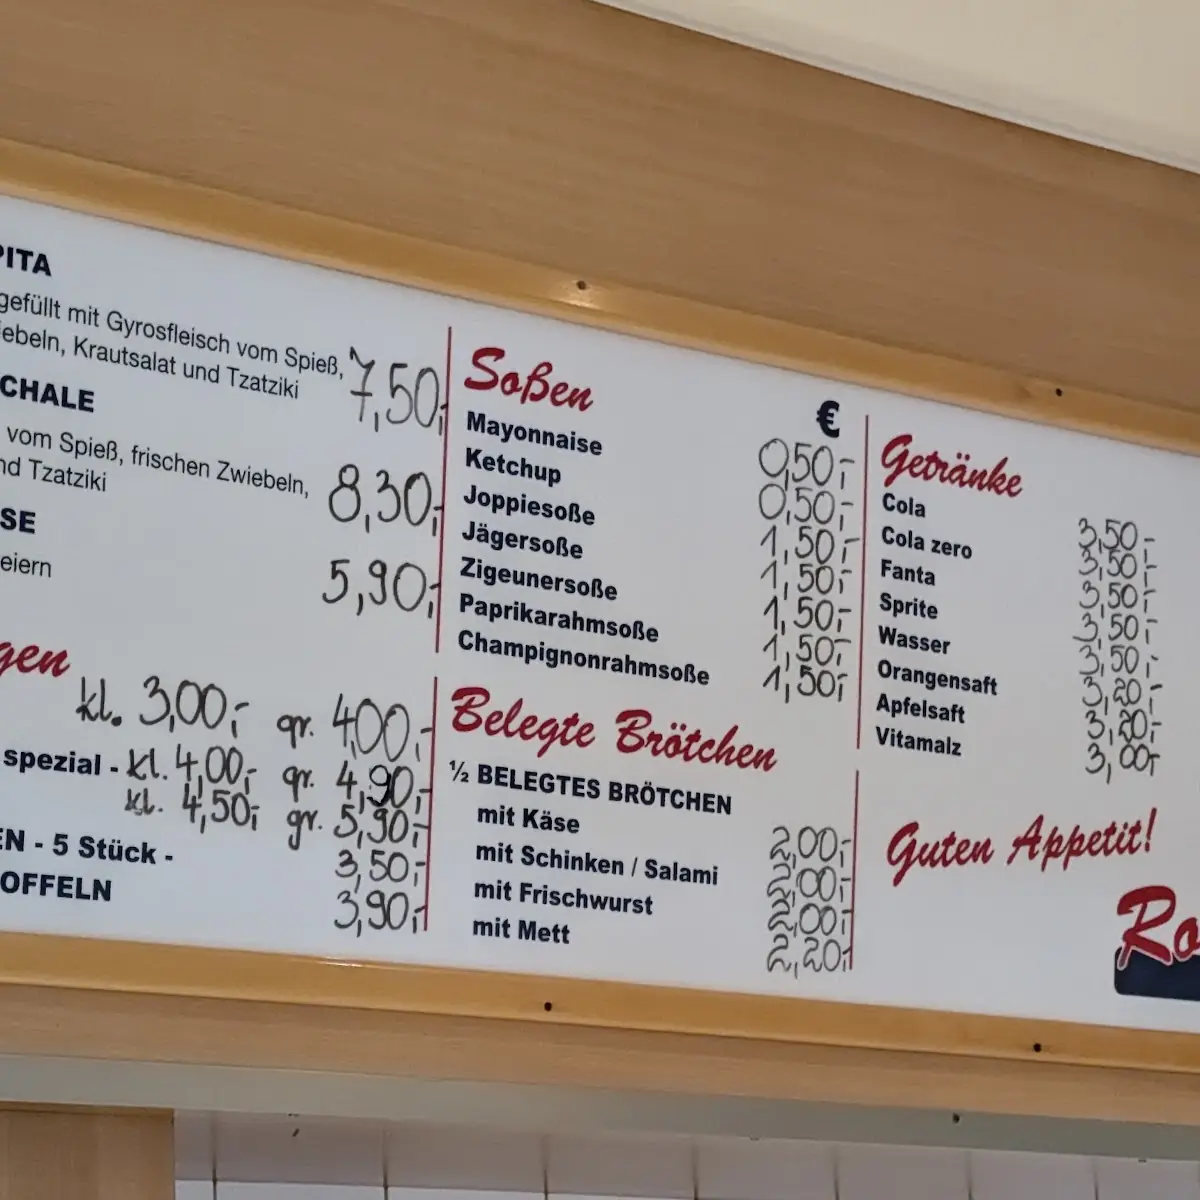 PITA
gefüllt mit Gyrosfleisch vom Spieß,
Krautsalat und Tzatziki 7,50,-
vom Spieß, frischen Zwiebeln,
Tzatziki 8,30,-
5,90,-
kl. 3,00,- gr. 4,00,-
spezial - kl. 4,00,- gr. 4,90,-
kl. 4,50,- gr. 5,90,-
- 5 Stück - 3,50,-
3,90,-
Soßen €
Mayonnaise 0,50,-
Ketchup 0,50,-
Joppiesoße 1,50,-
Jägersoße 1,50,-
Zigeunersoße 1,50,-
Paprikarahmsoße 1,50,-
Champignonrahmsoße 1,50,-
Belegte Brötchen
½ BELEGTES BRÖTCHEN
mit Käse 2,00,-
mit Schinken / Salami 2,00,-
mit Frischwurst 2,00,-
mit Mett 2,20,-
Getränke
Cola 3,50,-
Cola zero 3,50,-
Fanta 3,50,-
Sprite 3,50,-
Wasser 3,50,-
Orangensaft 3,20,-
Apfelsaft 3,20,-
Vitamalz 3,00,-
Guten Appetit!